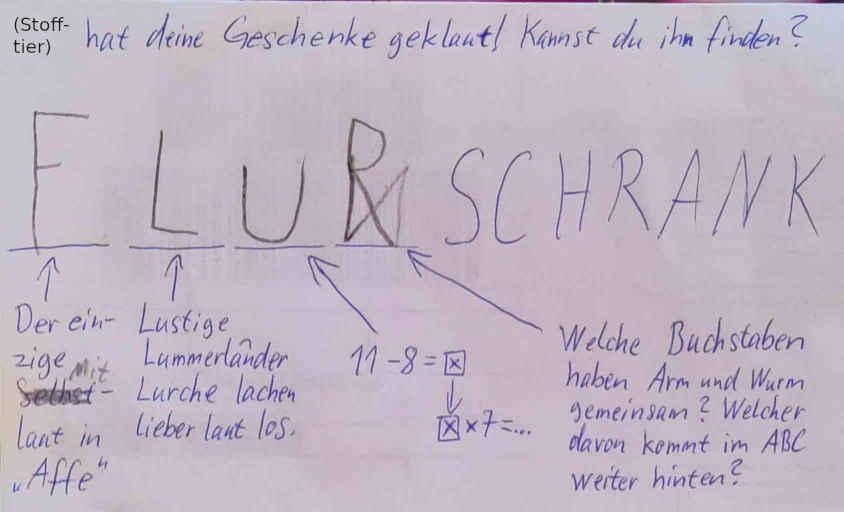 (Stoff-
tier)
hat deine Geschenke geklaut! Kannst du ihn finden?
FLUR SCHRANK
Der ein-
zige Mit
Selbst-
laut in
„Affe"
Lustige
Lummerländer
Lurche lachen
lieber laut los.
11-8=☒
☒×7=...
Welche Buchstaben
haben Arm und Wurm
gemeinsam? Welcher
davon kommt im ABC
weiter hinten?